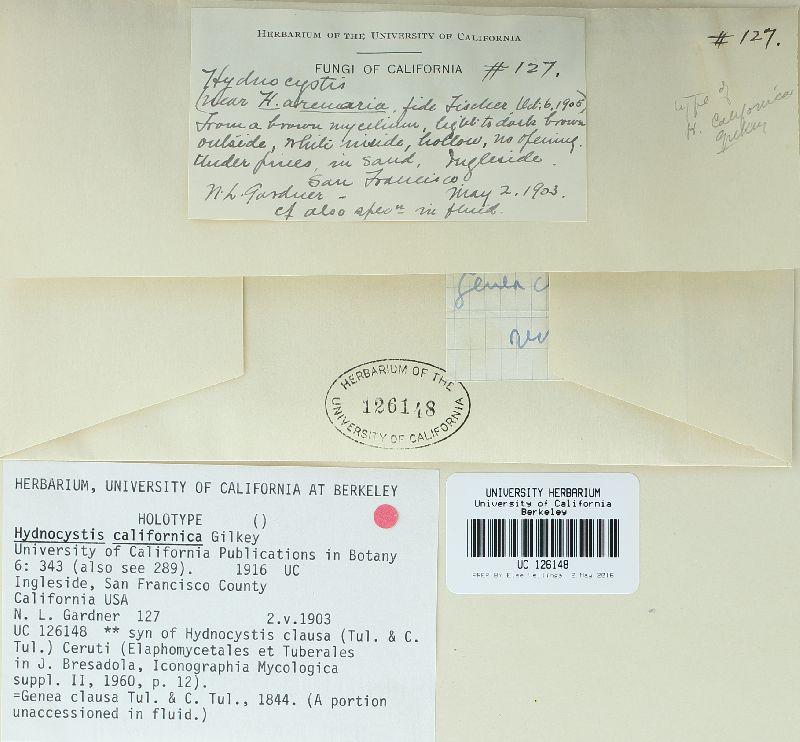 HERBARIUM OF THE UNIVERSITY OF CALIFORNIA
# 127.
FUNGI OF CALIFORNIA # 127.
Hydnocystis
(near H. arenaria, fide Fischer Oct. 6, 1905)
From a brown mycelium, light to dark brown
outside, white inside, hollow, no opening.
Under pines, in sand, Ingleside.
San Francisco
N. L. Gardner - May 2. 1903.
cf also specn in fluid.
type of
H. californica
Gilkey
Genea c
HERBARIUM OF THE
126148
UNIVERSITY OF CALIFORNIA
HERBARIUM, UNIVERSITY OF CALIFORNIA AT BERKELEY
HOLOTYPE ()
Hydnocystis californica Gilkey
University of California Publications in Botany
6: 343 (also see 289). 1916 UC
Ingleside, San Francisco County
California USA
N. L. Gardner 127 2.v.1903
UC 126148 ** syn of Hydnocystis clausa (Tul. & C.
Tul.) Ceruti (Elaphomycetales et Tuberales
in J. Bresadola, Iconographia Mycologica
suppl. II, 1960, p. 12).
=Genea clausa Tul. & C. Tul., 1844. (A portion
unaccessioned in fluid.)
UNIVERSITY HERBARIUM
University of California
Berkeley
UC 126148
PREP BY 2 May 2016